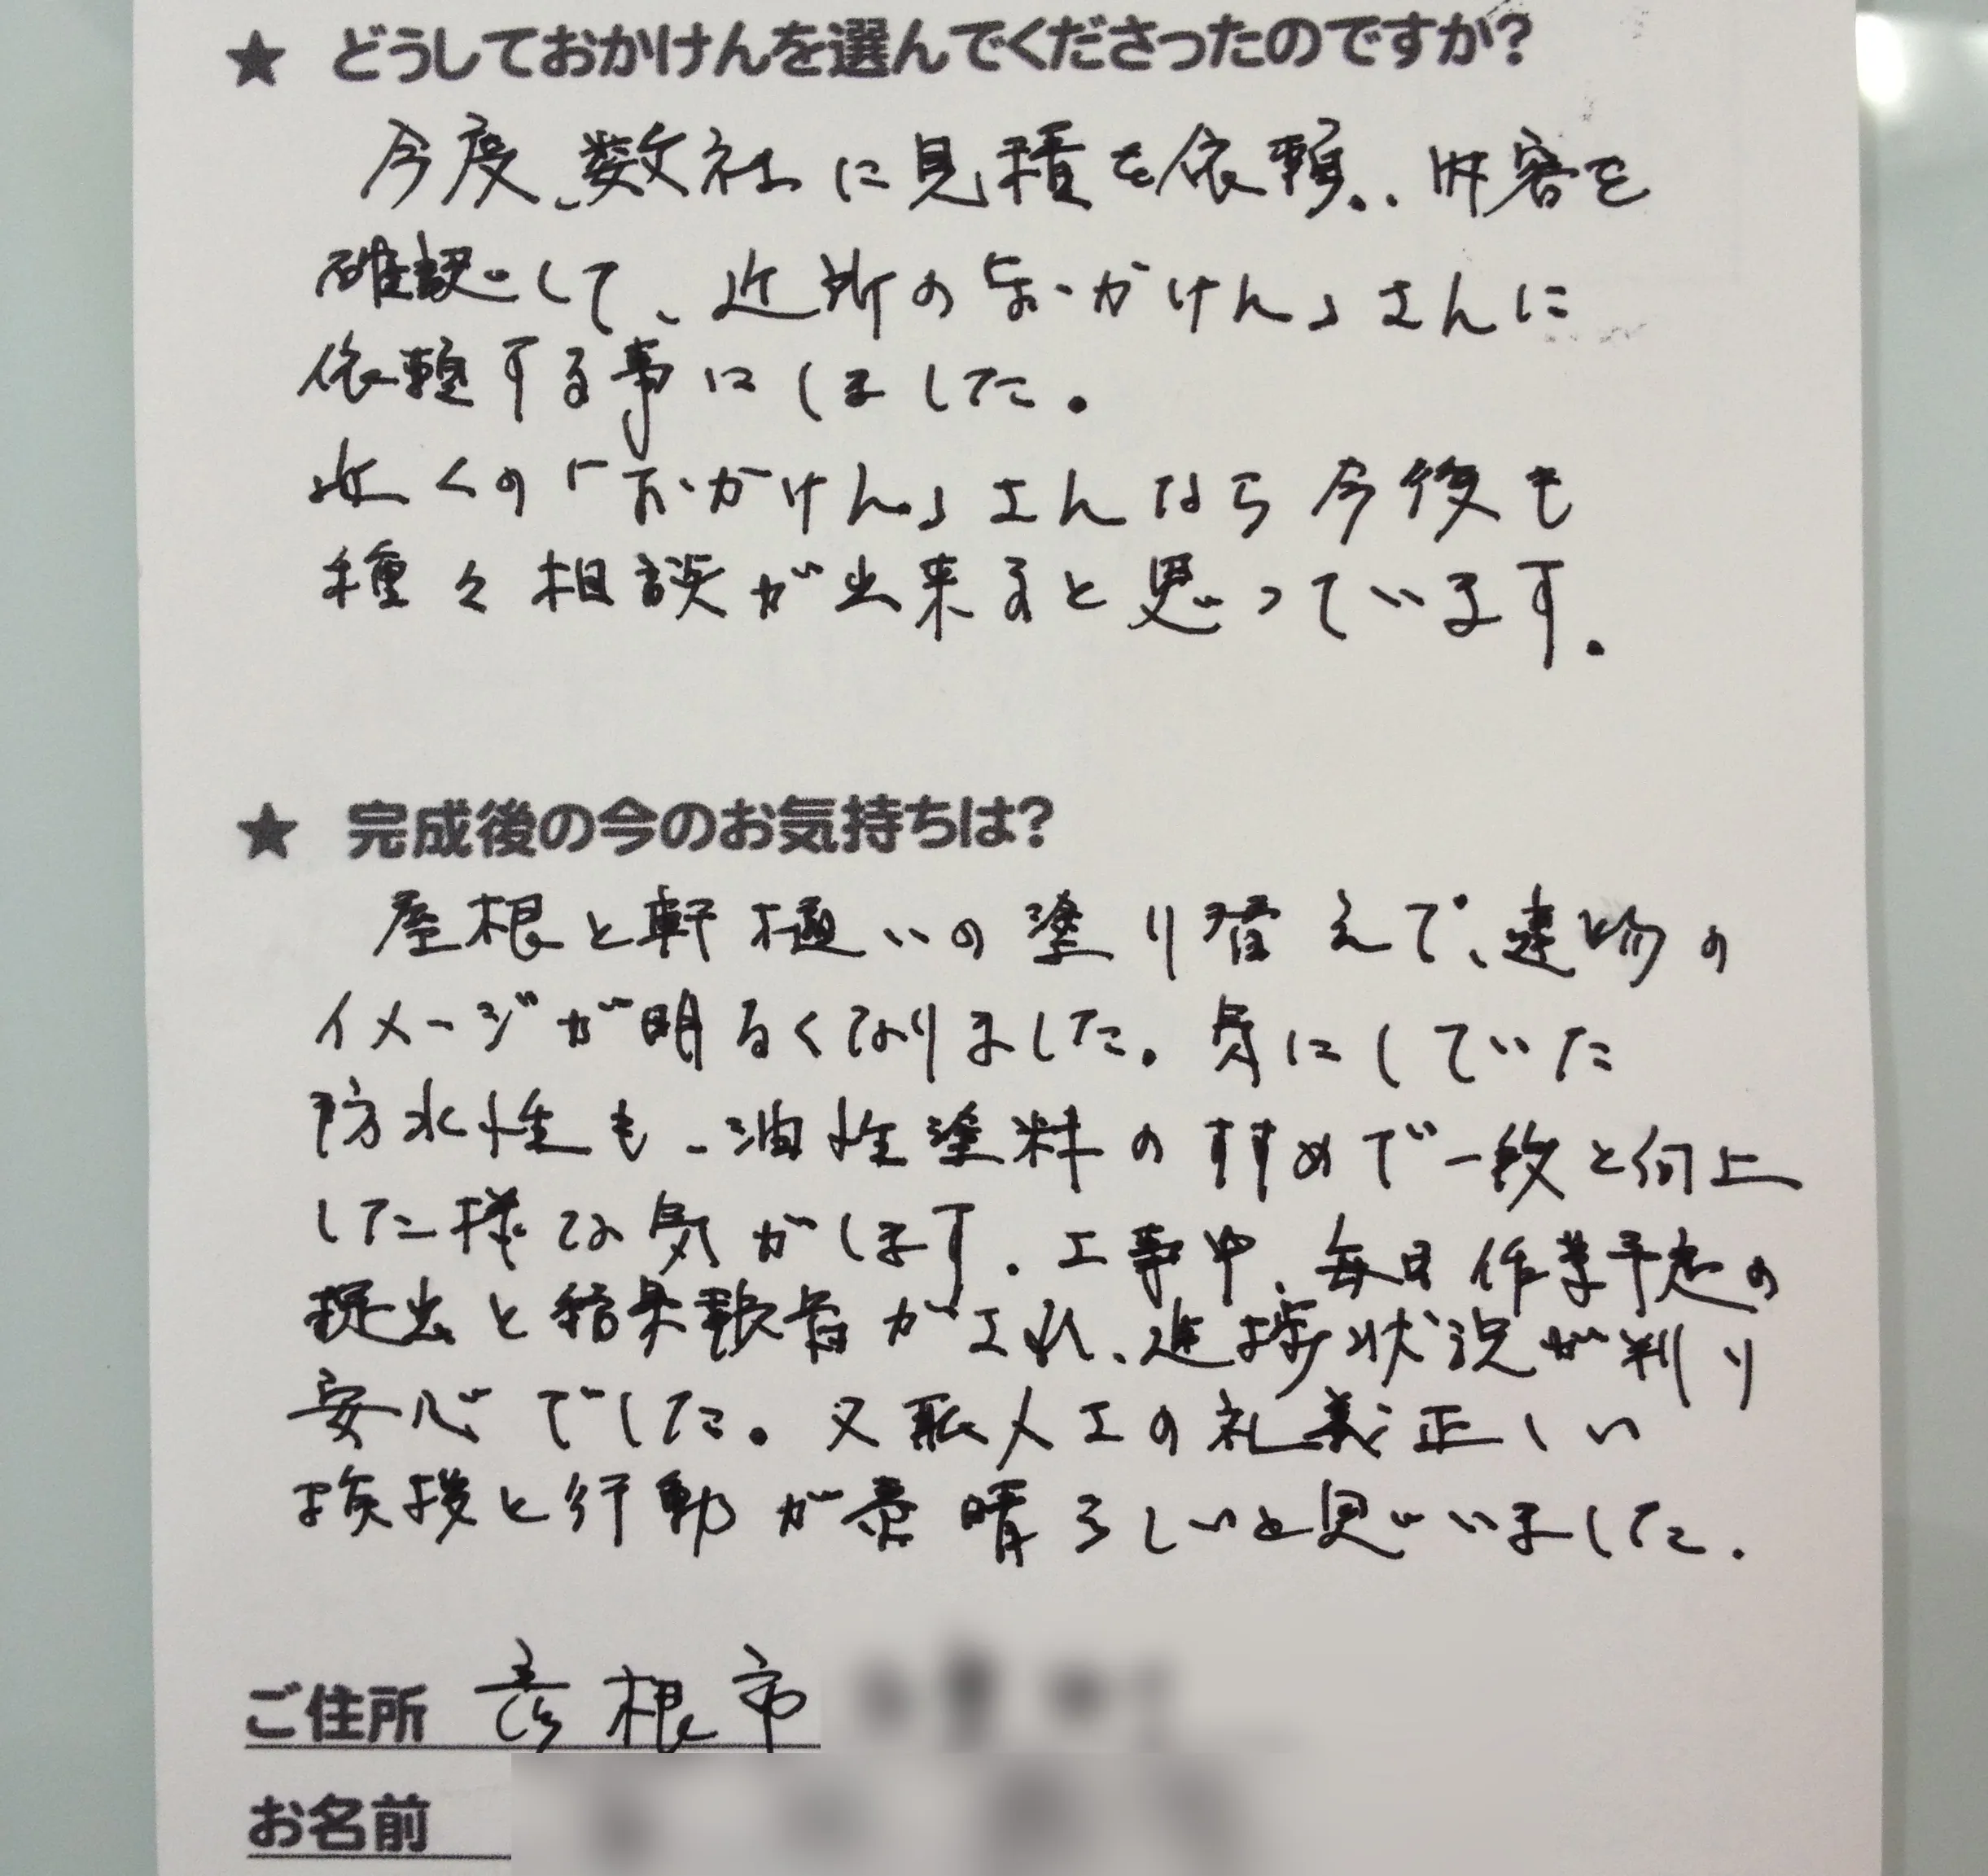 ★ どうしておかけんを選んでくださったのですか?
今度、数社に見積を依頼、内容を
確認して、近所の「おかけん」さんに
依頼する事にしました。
近くの「おかけん」さんなら今後も
種々相談が出来ると思っています。
★ 完成後の今のお気持ちは?
屋根と軒樋いの塗り替えで、建物の
イメージが明るくなりました。気にしていた
防水性も、油性塗料のすすめで一枚と向上
した様な気がします。工事中、毎日作業予定の
提出と結果報告がされ、進捗状況が判り
安心でした。又職人工の礼義正しい
挨拶と行動が素晴らしいと思いました.
ご住所 彦根市
お名前